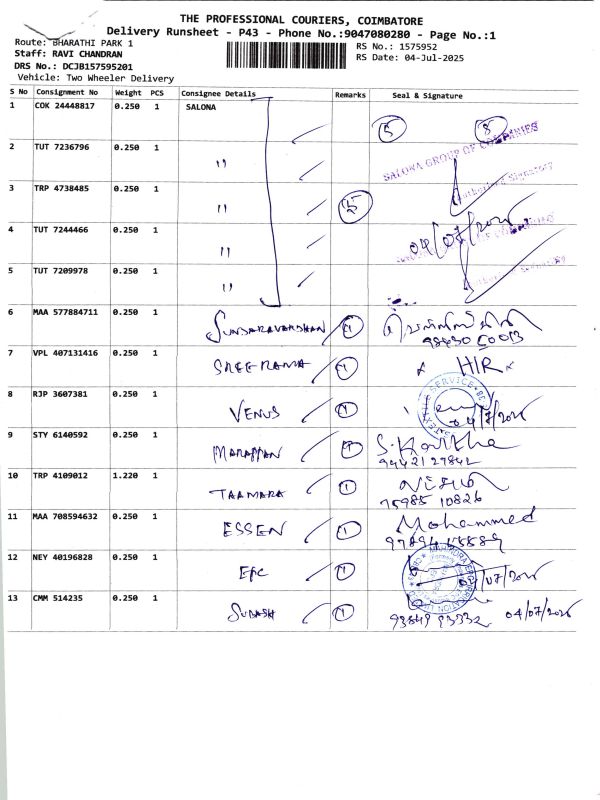 THE PROFESSIONAL COURIERS, COIMBATORE
Delivery Runsheet - P43 - Phone No.:9047080280 - Page No.:1
Route: BHARATHI PARK 1
RS No.: 1575952
Staff: RAVI CHANDRAN
RS Date: 04-Jul-2025
DRS No.: DCJB157595201
Vehicle: Two Wheeler Delivery
S No Consignment No Weight PCS Consignee Details Remarks Seal & Signature
1 COK 24448817 0.250 1 SALONA
5 8
2 TUT 7236796 0.250 1 "
SALONA GROUP OF COMPANIES
Authorised Signatory
3 TRP 4738485 0.250 1 " 5
4 TUT 7244466 0.250 1 "
04/07/2025
5 TUT 7209978 0.250 1 "
6 MAA 577884711 0.250 1 SUNDARAVARDHAN 1
7 VPL 407131416 0.250 1 SREE RAMA 1 H/R
8 RJP 3607381 0.250 1 VENUS 1
9 STY 6140592 0.250 1 MARAPPAN 1 S. Kavitha
9442127842
10 TRP 4109012 1.220 1 TAAMARA 1
75985 10826
11 MAA 708594632 0.250 1 ESSEN 1 Mohammed
12 NEY 40196828 0.250 1 EPC 1
13 CMM 514235 0.250 1 SUBASH 1 04/07/2025